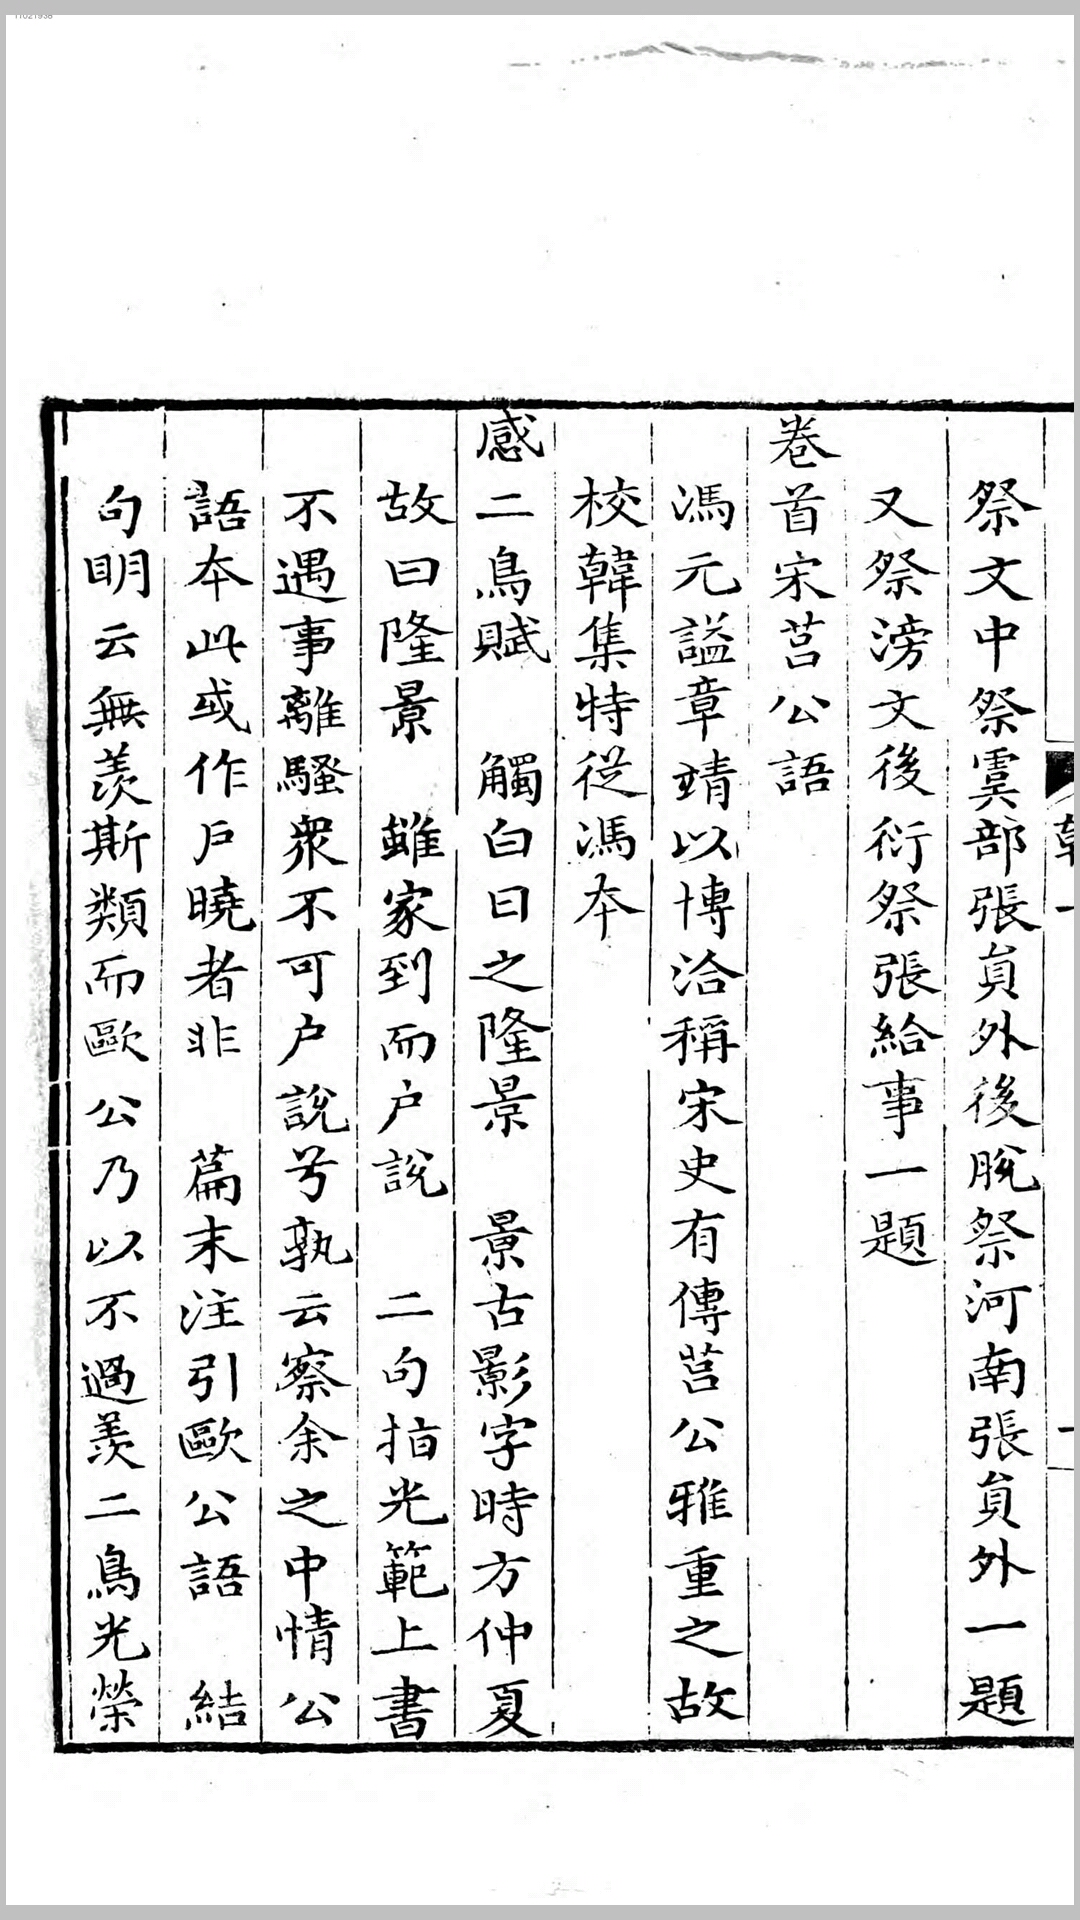 11021938
祭文中祭虞部張貟外後脫祭河南張貟外一題
又祭滂文後衍祭張給事一題
卷首宋莒公語
馮元謚章靖以博洽稱宋史有傳莒公雅重之故
校韓集特從馮本
感二鳥賦 觸白日之隆景 景古影字時方仲夏
故曰隆景 雖家到而户說 二句指光範上書
不遇事離騷衆不可户說兮孰云察余之中情公
語本此或作戶曉者非 篇末注引歐公語 結
句明云無羨斯類而歐公乃以不過羨二鳥光榮